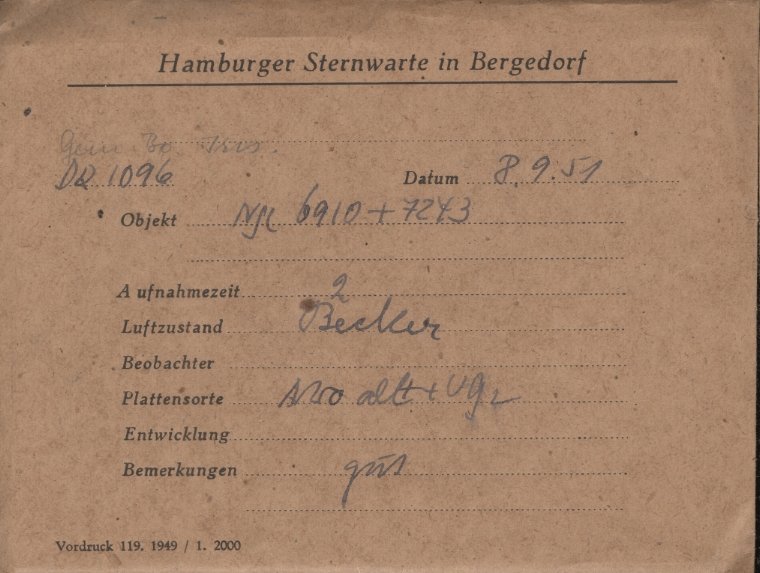 Hamburger Sternwarte in Bergedorf
DQ 1096
Datum 8.9.51
Objekt NGC 6910 + 7243
Aufnahmezeit 2
Luftzustand Becker
Beobachter
Plattensorte alt + UG2
Entwicklung
Bemerkungen gut
Vordruck 119. 1949 / 1. 2000